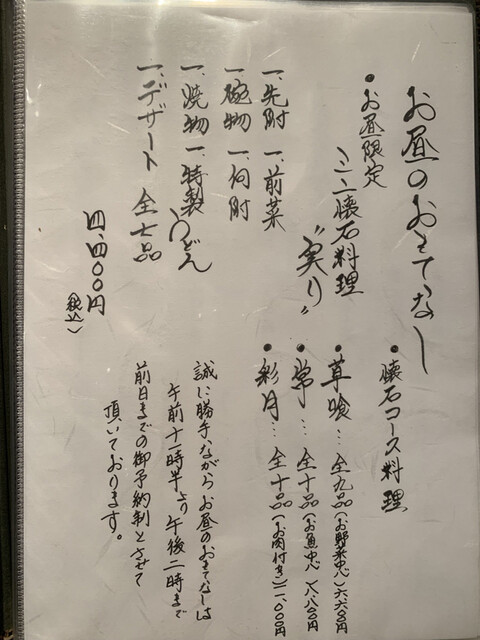 お昼のおもてなし
●お昼限定
ミニ懐石料理
"実り"
一、先附 一、前菜
一、碗物 一、向附
一、焼物 一、特製うどん
一、デザート 全七品
四、四〇〇円
(税込)
●懐石コース料理
●草喰… 全九品(お野菜中心)六、六〇〇円
●常… 全十品(お魚中心)八、八〇〇円
●彩月… 全十品(お肉付き)一一、〇〇〇円
誠に勝手ながらお昼のおもてなしは
午前十一時半より午後二時まで
前日までの御予約制とさせて
頂いております。